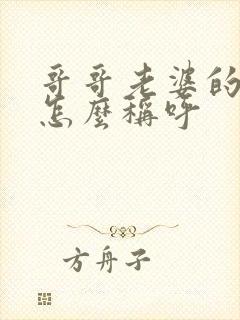 哥哥老婆的
怎麼稱呼
方舟子